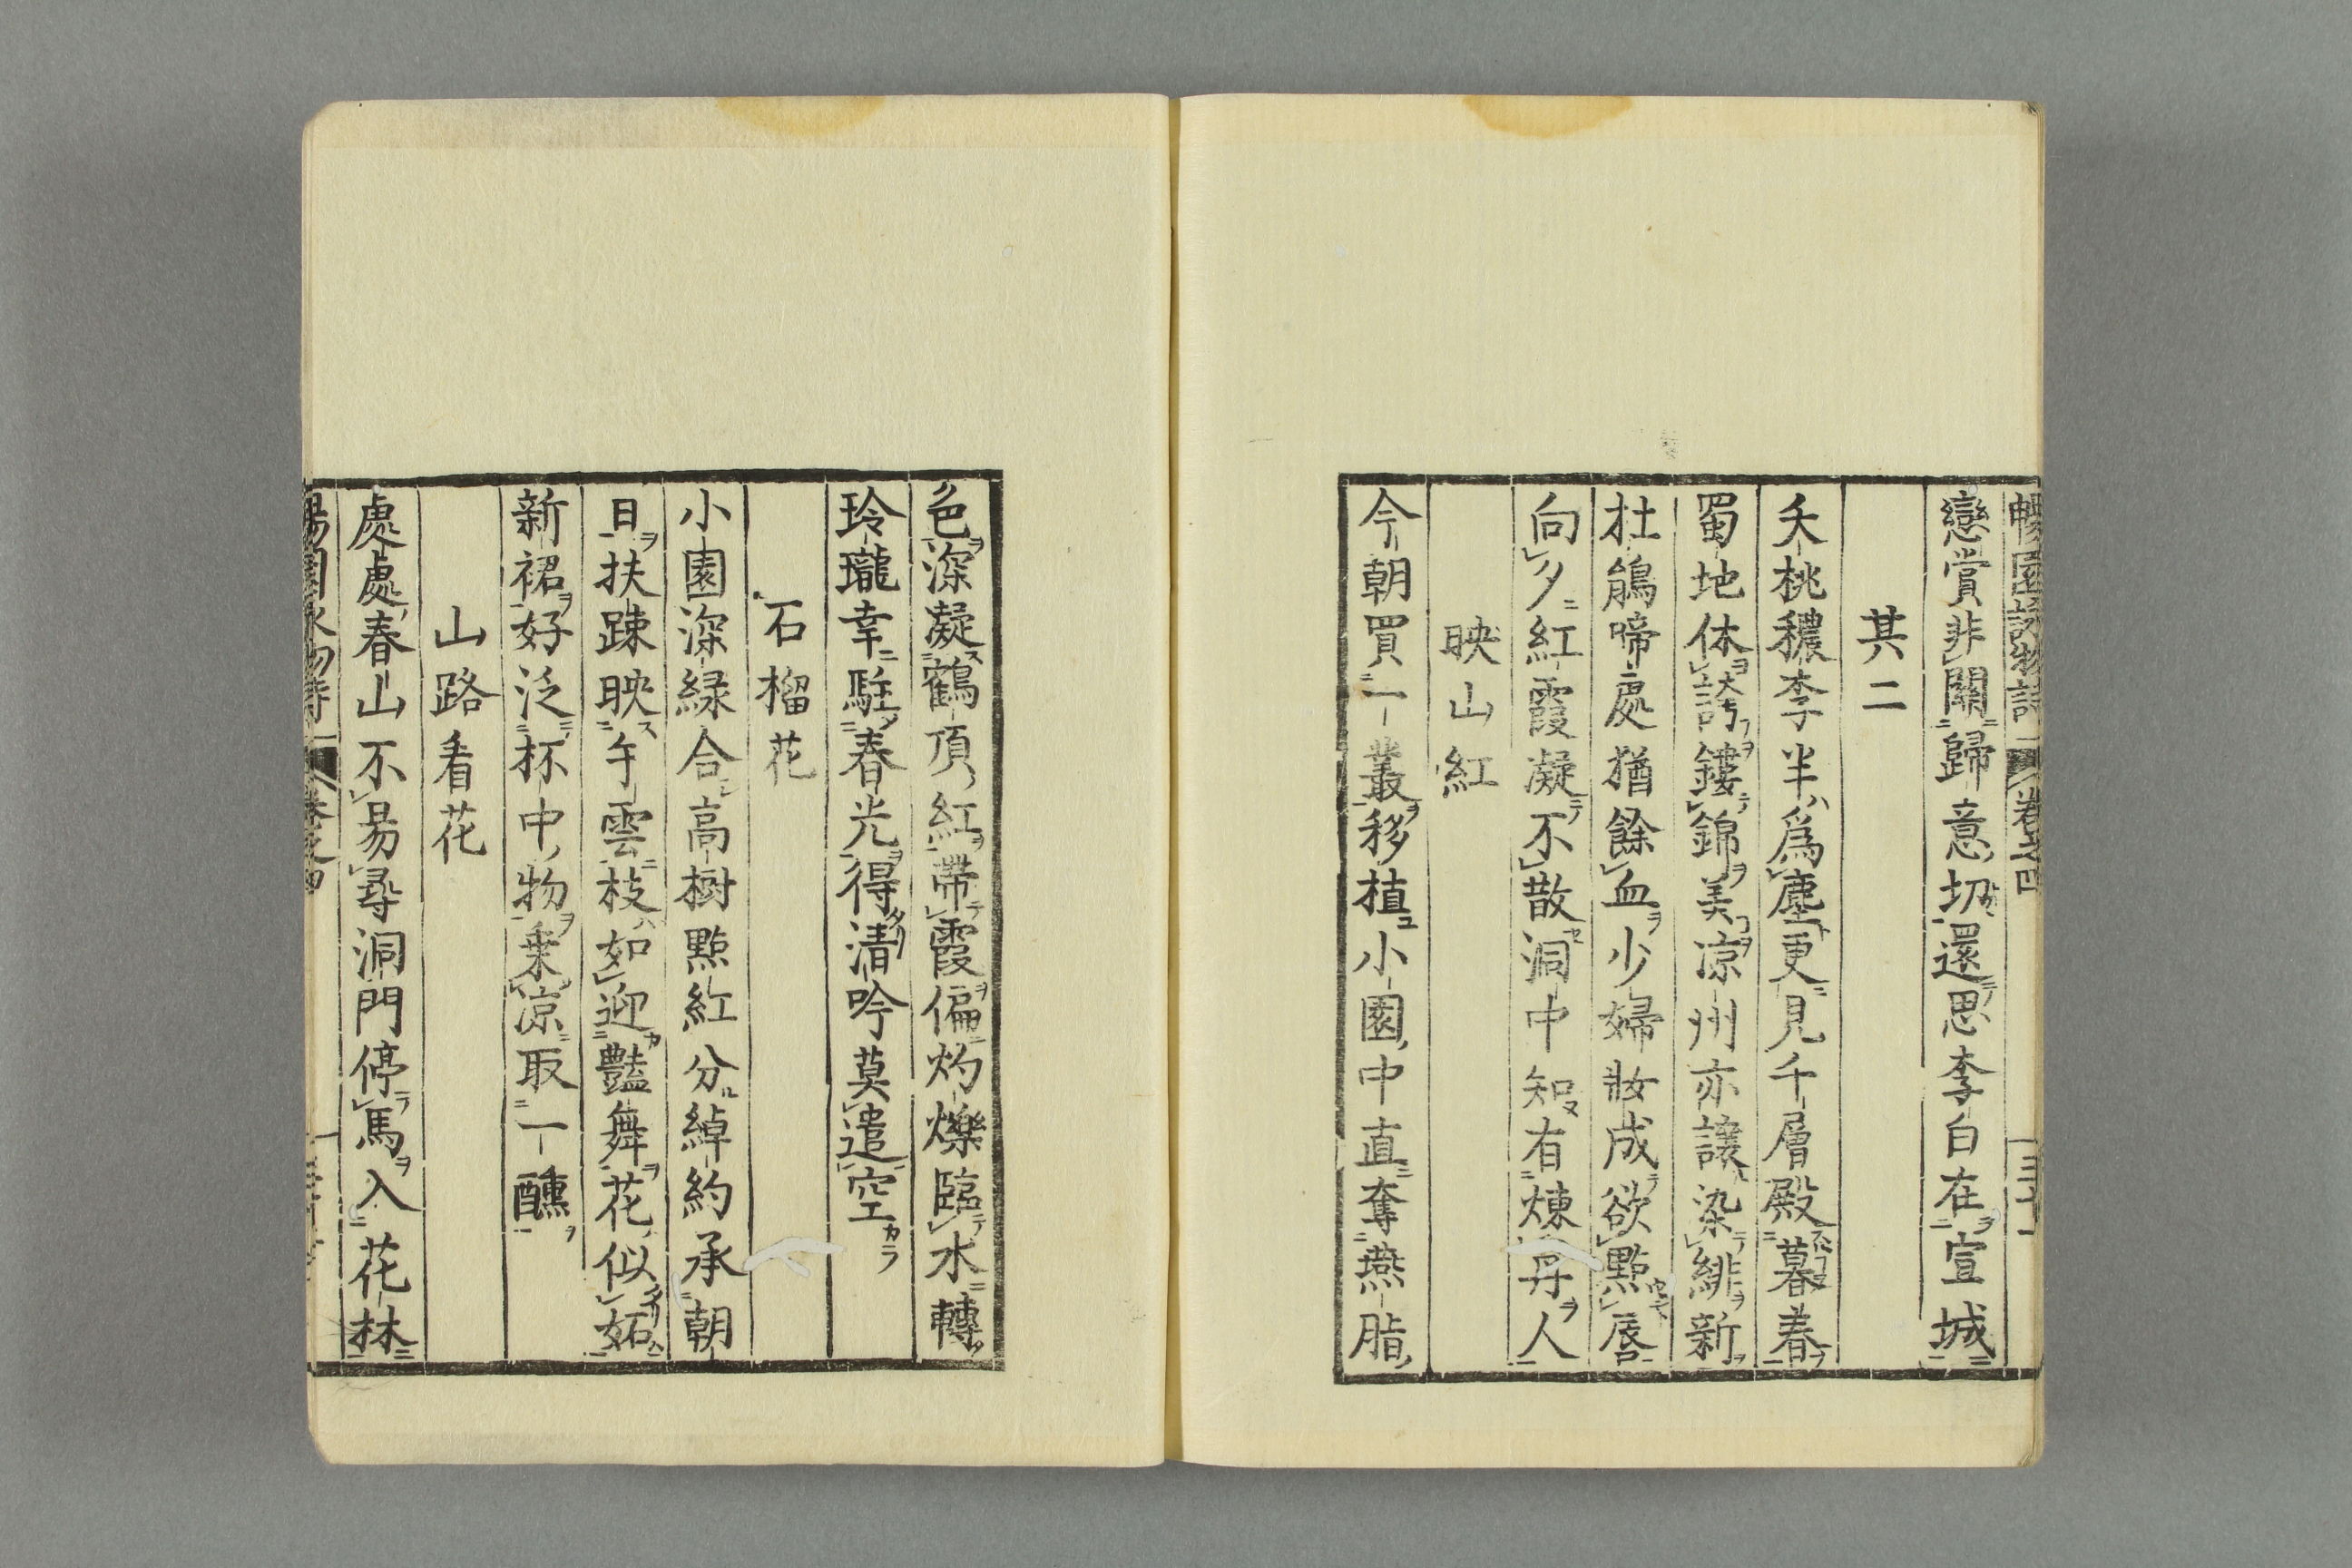 暢園詠物詩 卷之四 三十一
戀賞非關歸意切還思李白在宣城
其二
夭桃穠李半爲塵更見千層殿暮春
蜀地休誇鏤錦美凉州亦讓染緋新
杜鵑啼處猶餘血少婦妝成欲點唇
向夕紅霞凝不散洞中知有煉丹人
映山紅
今朝買一叢移植小園中直奪燕脂
色深凝鶴頂紅帶霞偏灼爍臨水轉
玲瓏幸駐春光得清吟莫遣空
石榴花
小園深緑合高樹點紅分綽約承朝
日扶踈映午雲枝如迎豔舞花似妬
新裙好泛杯中物乗凉取一醺
山路看花
處處春山不易尋洞門停馬入花林
暢園詠物詩 卷之四